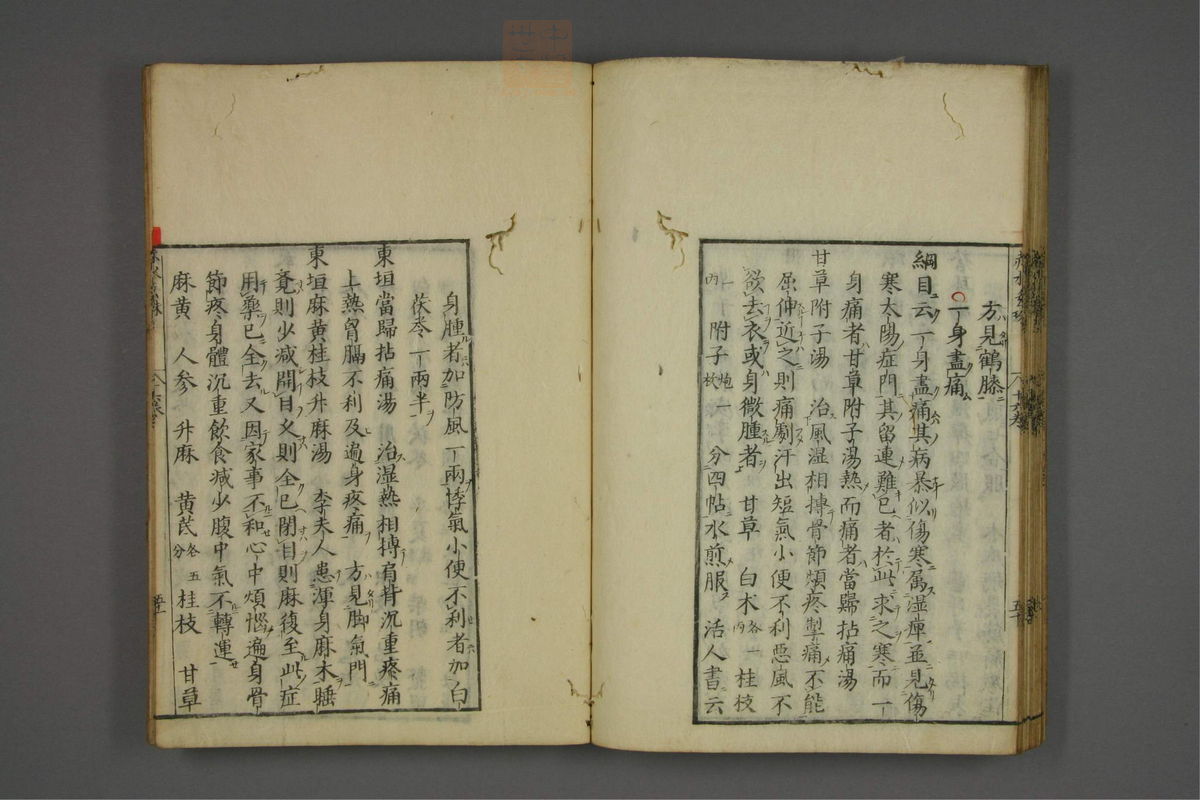 方見鶴膝
○一身盡痛
綱目云一身盡痛其病暴似傷寒属湿痺並見傷
寒太陽症門其留連難已者於此求之寒而一
身痛者甘草附子湯熱而痛者當歸拈痛湯
甘草附子湯 治風湿相摶骨節煩疼掣痛不能
屈伸近之則痛劇汗出短氣小便不利惡風不
欲去衣或身微腫者 甘草 白朮各一両 桂枝
一両 附子炮一枚 分四帖水煎服 活人書云
身腫者加防風一両悸氣小便不利者加白
茯苓一両半
東垣當歸拈痛湯 治湿熱相摶肩背沉重疼痛
上熱胷膈不利及遍身疼痛 方見脚氣門
東垣麻黄桂枝升麻湯 李夫人患渾身麻木睡
覺則少減開目久則全已閉目則麻復至此症
用藥已全去又因家事不和心中煩惱遍身骨
節疼身體沉重飲食減少腹中氣不轉運
麻黄 人参 升麻 黄芪各五分 桂枝 甘草